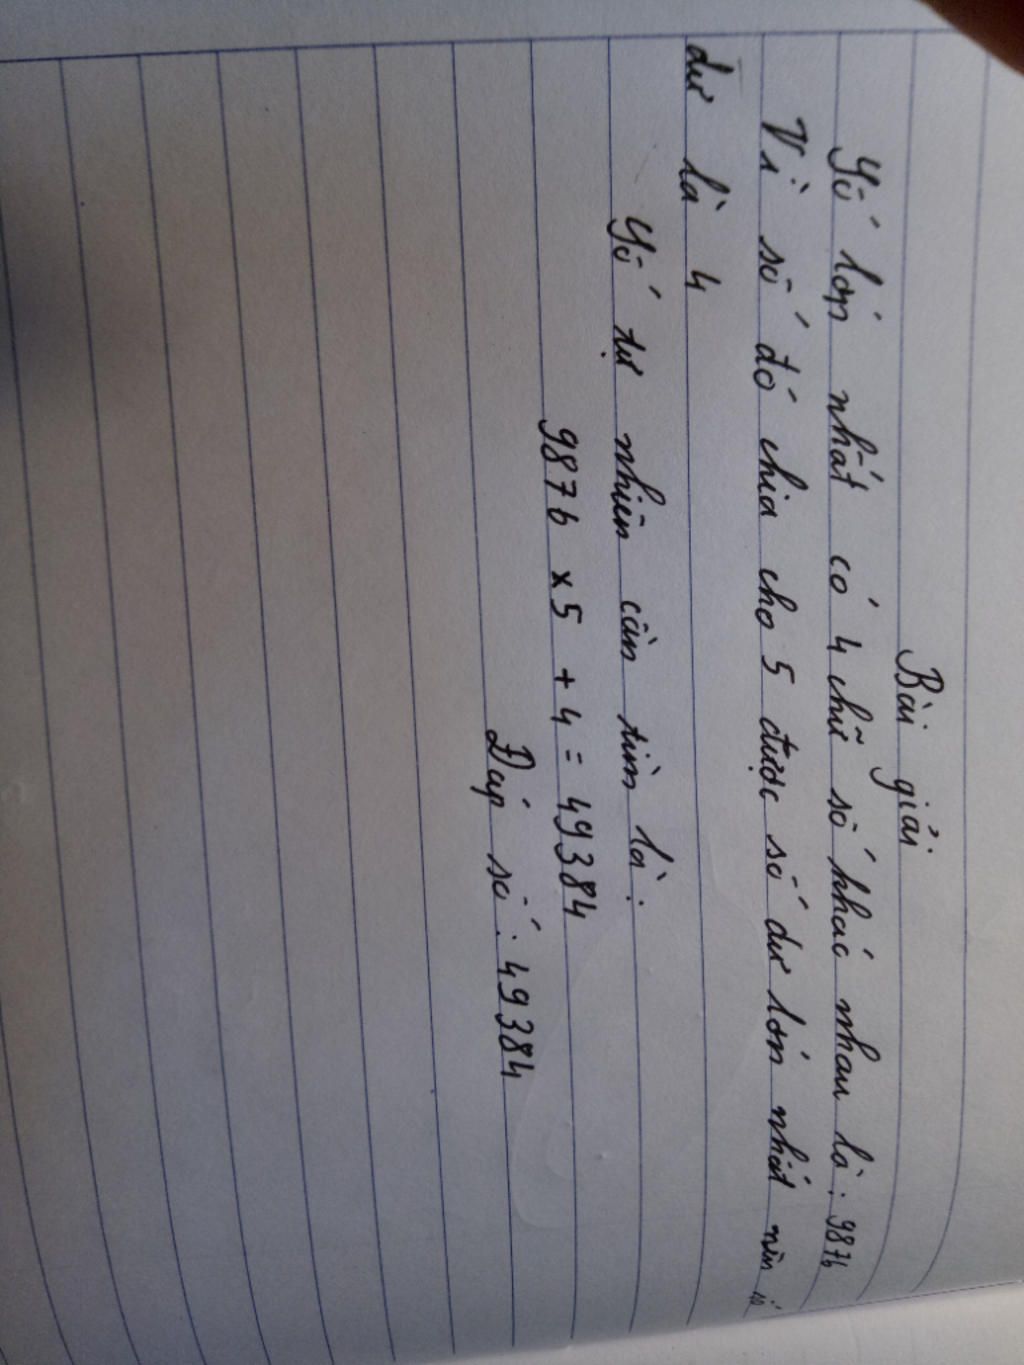 Bài giải
Số lớn nhất có 4 chữ số khác nhau là : 9876
Vì số đó chia cho 5 được số dư lớn nhất nên số
dư là 4
Số tự nhiên cần tìm là :
9876 x 5 + 4 = 49384
Đáp số : 49384